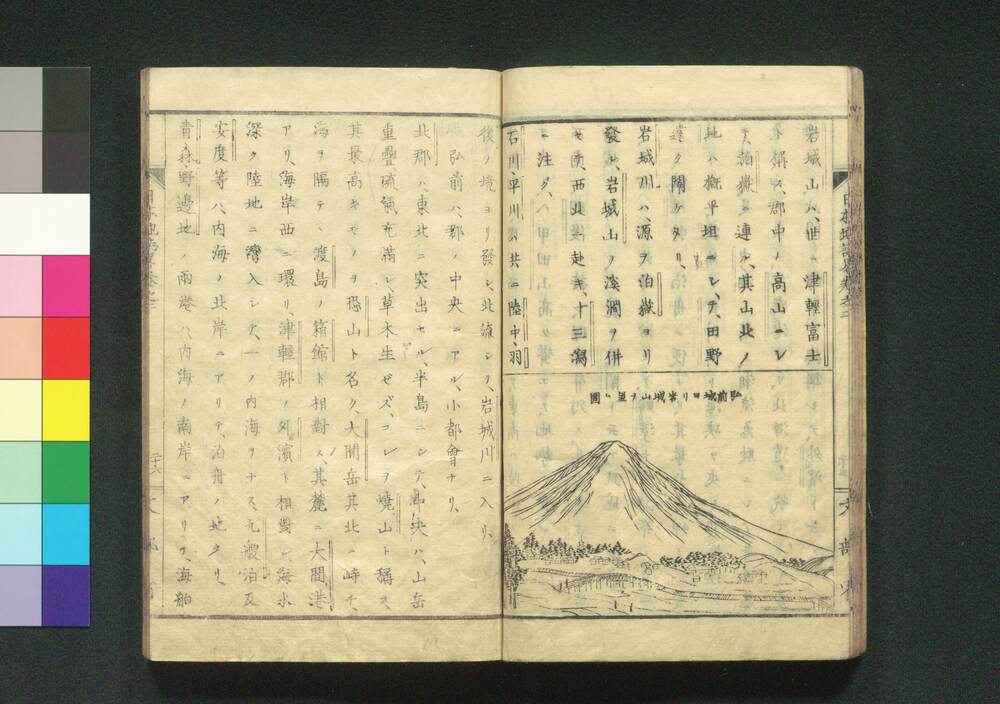 岩城山ハ、世ニ津輕富士
ト稱ス、郡中ノ高山ニシ
テ、泊嶽ニ連ル、其山北ノ
地ハ概平坦ニシテ、田野
遠ク闢ケタリ、
岩城川ハ、源ヲ泊嶽ヨリ
發シ、岩城山ノ溪澗ヲ併
セ、西北ニ赴キ、十三潟
ニ注ク、
石川、平川ハ、共ニ陸中、羽
弘前城ヨリ岩城山ヲ望ム圖
後ノ境ヨリ發シ、北流シテ、岩城川ニ入リ、
弘前ハ、郡ノ中央ニアル、小都會ナリ、
北郡ハ、東北ニ突出セル、半島ニシテ、北ハ、山岳
重疊、硫氣充滿シ、草木生ゼズ、コレヲ燒山ト稱ス、
其最高キモノヲ恐山ト名ク、大間岳其北ニ峙チ、
海ヲ隔テヽ渡島ノ箱館ト相對ス、其麓ニ大間港
アリ、海岸西ニ環リ、津輕郡ノ外濱ト相對シ、海水
深ク陸地ニ灣入シテ、一ノ内海ヲナス、九艘泊及
安度等ハ、内海ノ北岸ニアリテ、泊舟ノ地タリ、
青森、野邊地ノ兩港ハ、内海ノ南岸ニアリテ、海舶
二十六